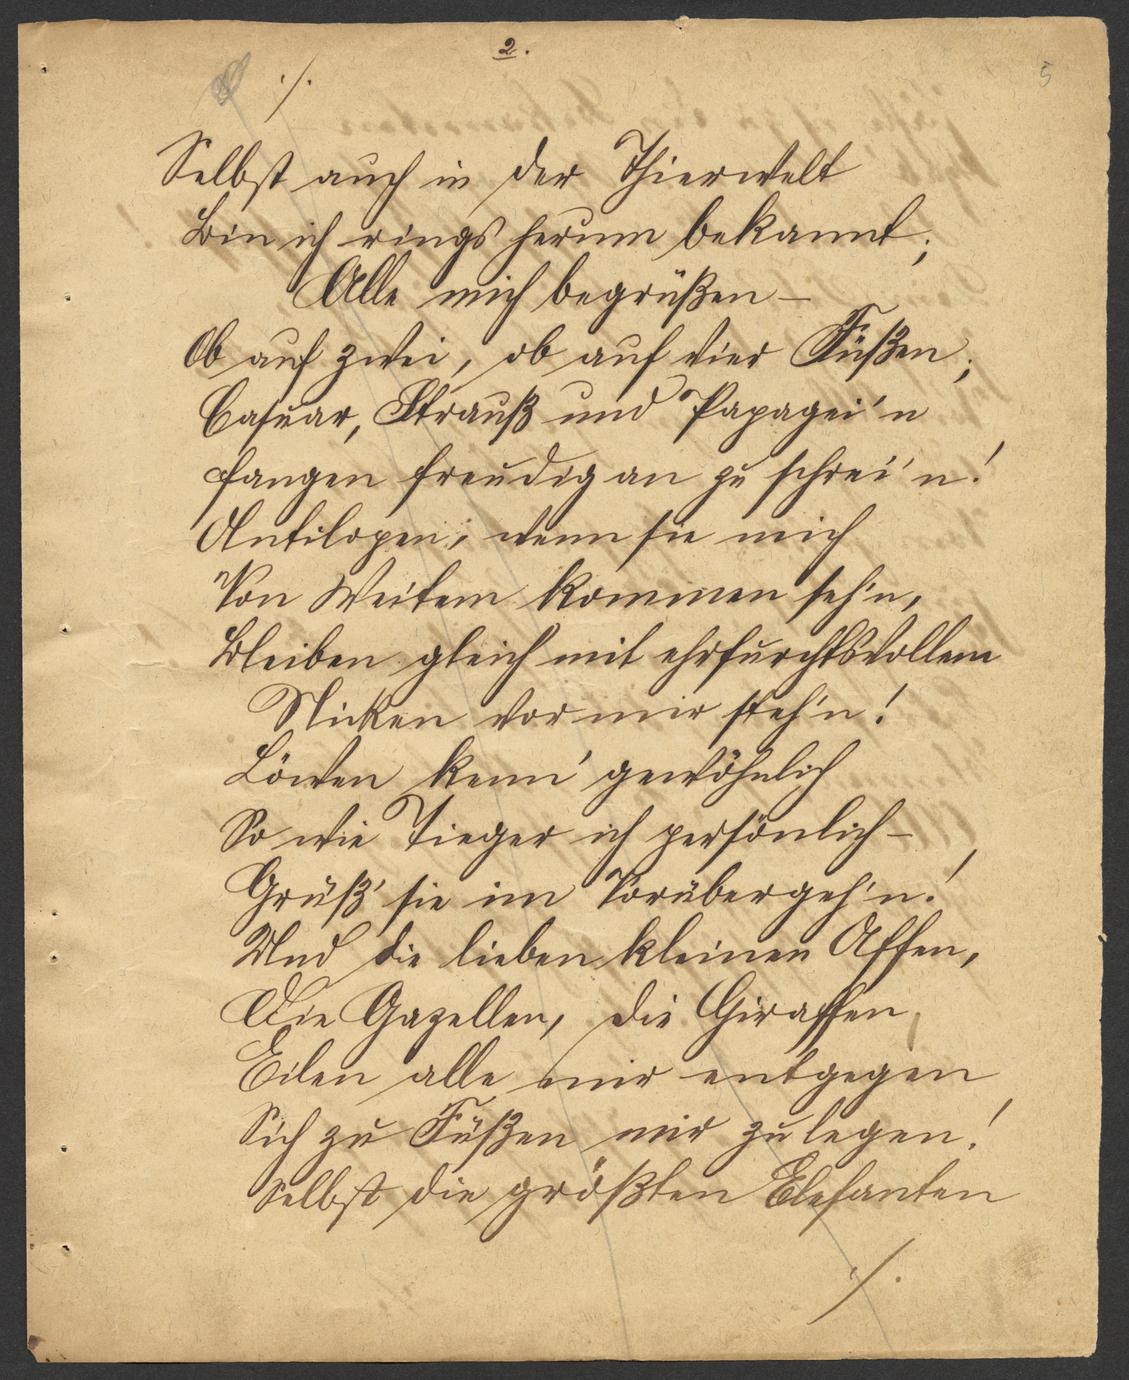 2.
5
./.
Selbst auch in der Thierwelt
Bin ich rings herum bekannt;
Alle mich begrüßen –
Ob auf zwei, ob auf vier Füßen;
Casuar, Strauß und Papagei'n
fangen freudig an zu schrei'n!
Antilopen, wenn sie mich
Von Weitem kommen seh'n,
Bleiben gleich mit ehrfurchtsvollem
Nicken vor mir steh'n!
Löwen kenn' gewöhnlich
So wie Tieger ich persönlich –
Grüß' sie im Vorübergeh'n!
Und die lieben kleinen Affen,
Die Gazellen, die Giraffen,
Eilen alle mir entgegen
Sich zu Füßen mir zu legen!
Selbst die größten Elefanten
./.